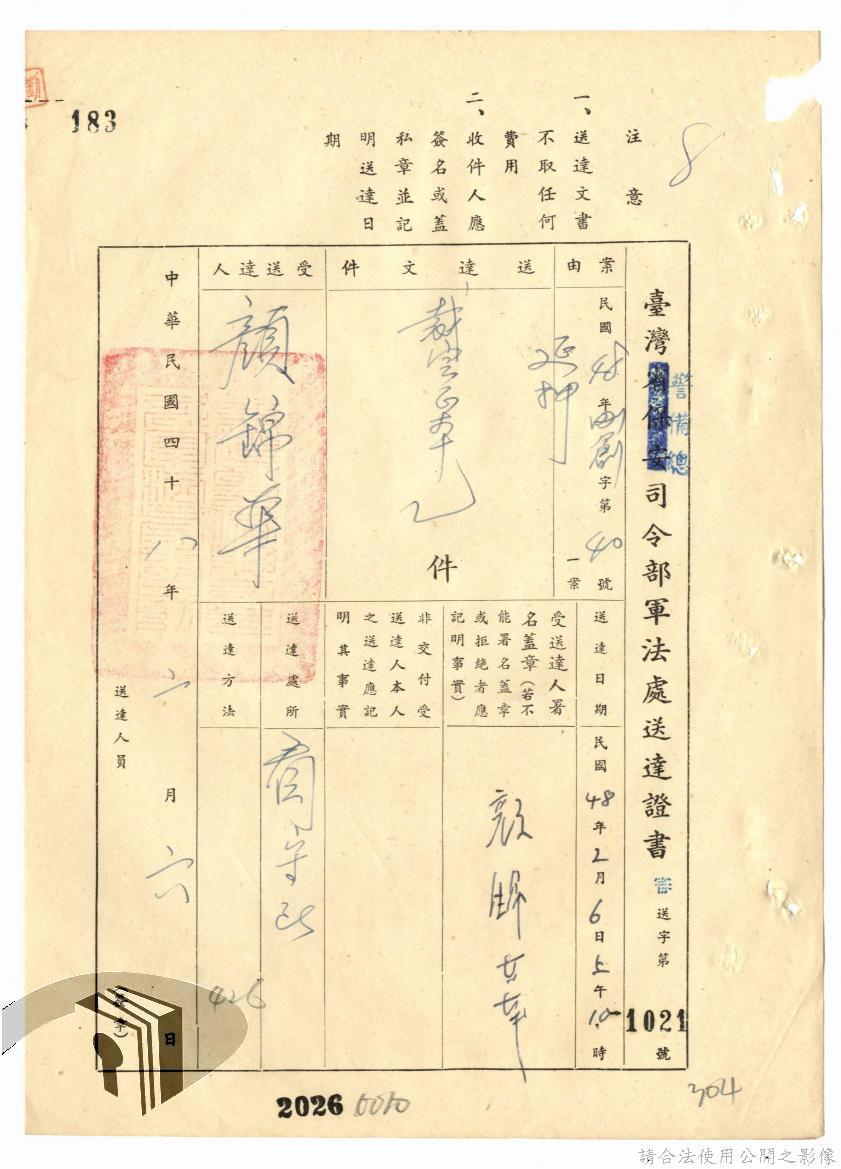 183
8
注意
一、送達文書
不取任何
費用
二、收件人應
簽名或蓋
私章並記
明送達日
期
臺灣省保安司令部軍法處送達證書
警備總
審
送字第
1021
號
案由
民國48年
字第40號
一案
延押
送達文件
裁定正本乙
件
受送達人
顏錦華
送達日期
民國48年2月6日上午10時
受送達人署
名蓋章(若不
能署名蓋章
或拒絕者應
記明事實)
顏錦華
非交付受
送達人本人
之送達應記
明其事實
送達處所
看守所
送達方法
426
中華民國四十八年二月六日
送達人員
(簽章)
2026
304
請合法使用公開之影像